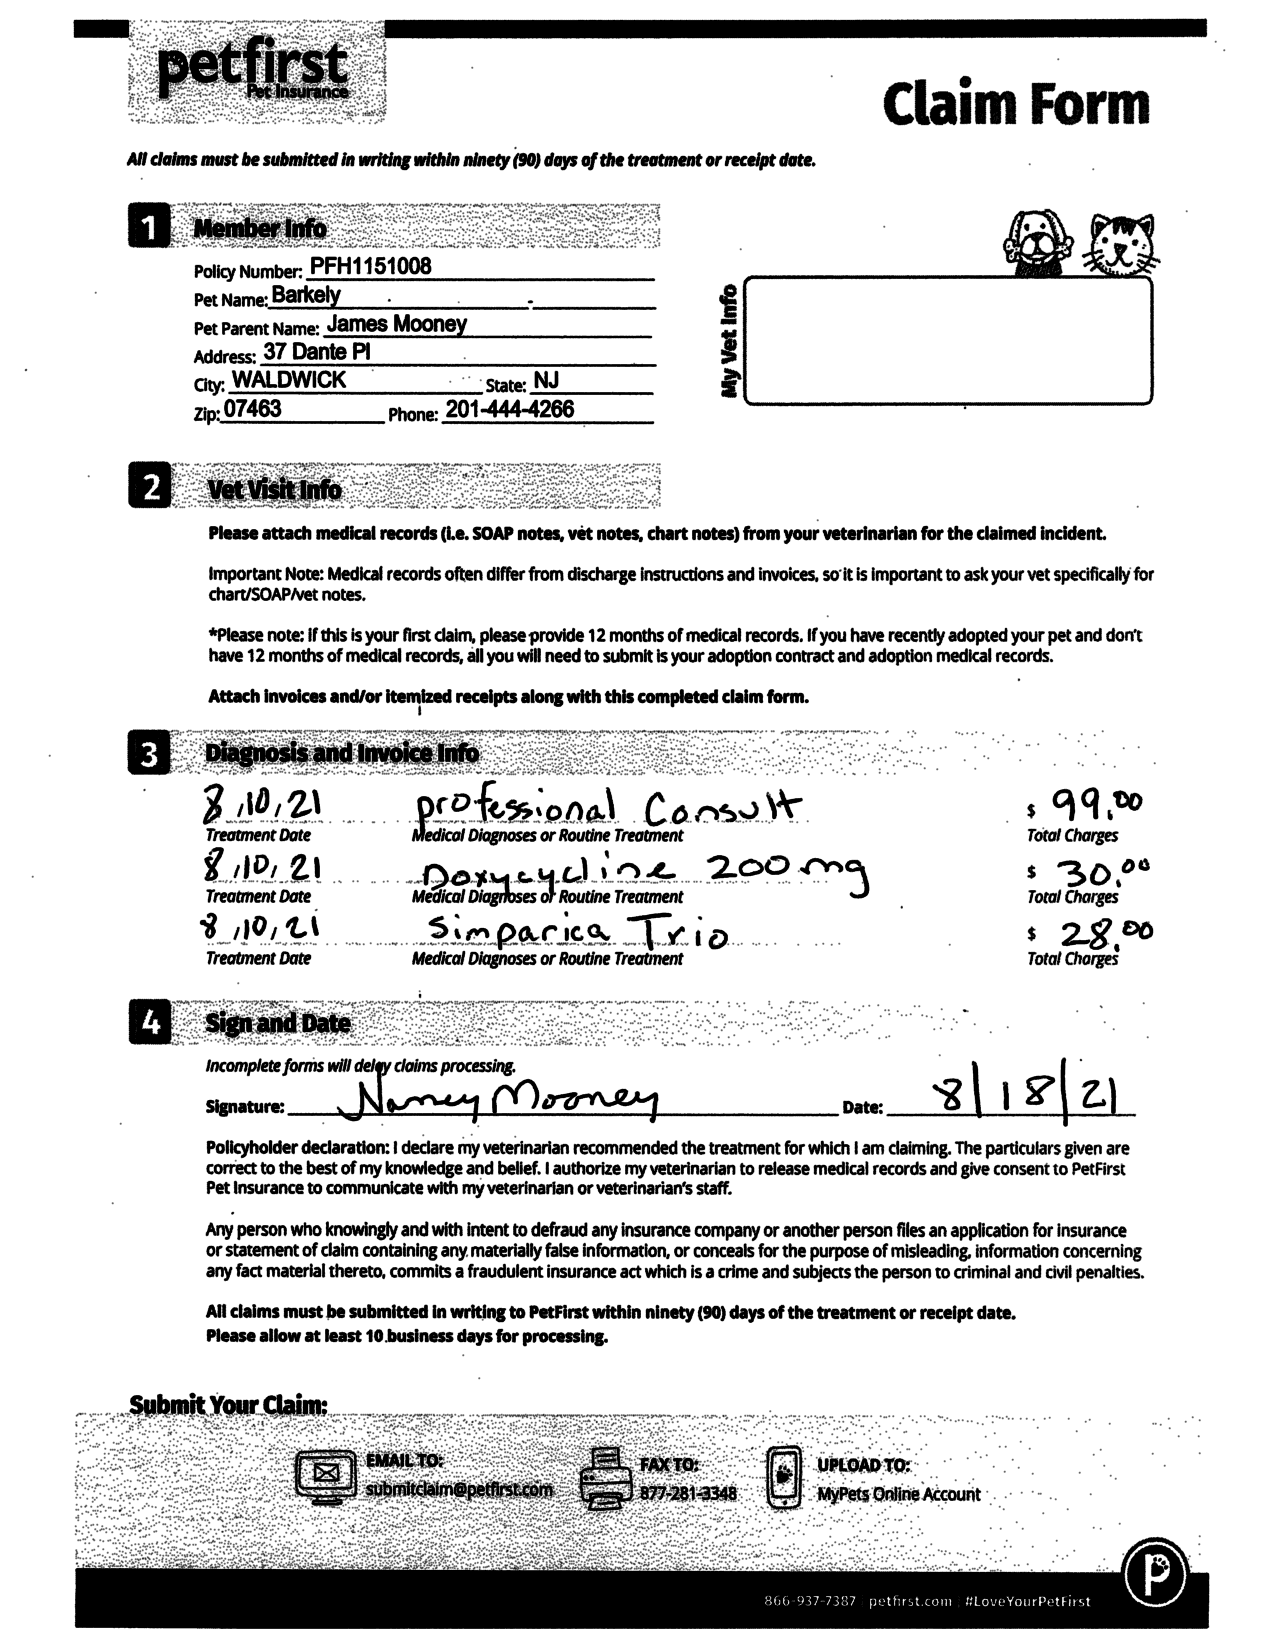 petfirst
Pet Insurance
Claim Form
All claims must be submitted in writing within ninety (90) days of the treatment or receipt date.
1 Member Info
Policy Number: PFH1151008
Pet Name: Barkely
Pet Parent Name: James Mooney
Address: 37 Dante Pl
City: WALDWICK State: NJ
Zip: 07463 Phone: 201-444-4266
My Vet Info
2 Vet Visit Info
Please attach medical records (i.e. SOAP notes, vet notes, chart notes) from your veterinarian for the claimed incident.
Important Note: Medical records often differ from discharge instructions and invoices, so it is important to ask your vet specifically for
chart/SOAP/vet notes.
*Please note: If this is your first claim, please provide 12 months of medical records. If you have recently adopted your pet and don't
have 12 months of medical records, all you will need to submit is your adoption contract and adoption medical records.
Attach invoices and/or itemized receipts along with this completed claim form.
3 Diagnosis and Invoice Info
8,10,21 professional Consult $ 99.00
Treatment Date Medical Diagnoses or Routine Treatment Total Charges
8,10,21 Doxycycline 200 mg $ 30.00
Treatment Date Medical Diagnoses or Routine Treatment Total Charges
8,10,21 Simparica Trio $ 28.00
Treatment Date Medical Diagnoses or Routine Treatment Total Charges
4 Sign and Date
Incomplete forms will delay claims processing.
Signature: Nancy Mooney Date: 8/18/21
Policyholder declaration: I declare my veterinarian recommended the treatment for which I am claiming. The particulars given are
correct to the best of my knowledge and belief. I authorize my veterinarian to release medical records and give consent to PetFirst
Pet Insurance to communicate with my veterinarian or veterinarian's staff.
Any person who knowingly and with intent to defraud any insurance company or another person files an application for insurance
or statement of claim containing any materially false information, or conceals for the purpose of misleading, information concerning
any fact material thereto, commits a fraudulent insurance act which is a crime and subjects the person to criminal and civil penalties.
All claims must be submitted in writing to PetFirst within ninety (90) days of the treatment or receipt date.
Please allow at least 10 business days for processing.
Submit Your Claim:
EMAIL TO: FAX TO: UPLOAD TO:
submitclaim@petfirst.com 877-281-3348 MyPets Online Account
866-937-7387 | petfirst.com | #LoveYourPetFirst